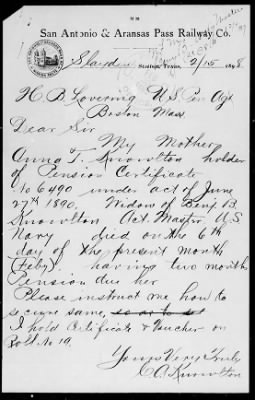 San Antonio & Aransas Pass Railway Co.
Slayden Station, Texas, 2/15 1898
H. B. Lovering U.S. Pen Agt
Boston Mass.
Dear Sir
My Mother
Anna T. Knowlton holder
of Pension Certificate
No 6490 under act of June
27th 1890. Widow of Benj. B.
Knowlton Act. Master U.S
Navy died on the 6th
day of the present month
(Feby). having two months
Pension due her
Please instruct me how to
secure same, so as to so
I hold Certificate & Voucher on
Roll No 19.
Yours Very Truly
C A Knowlton